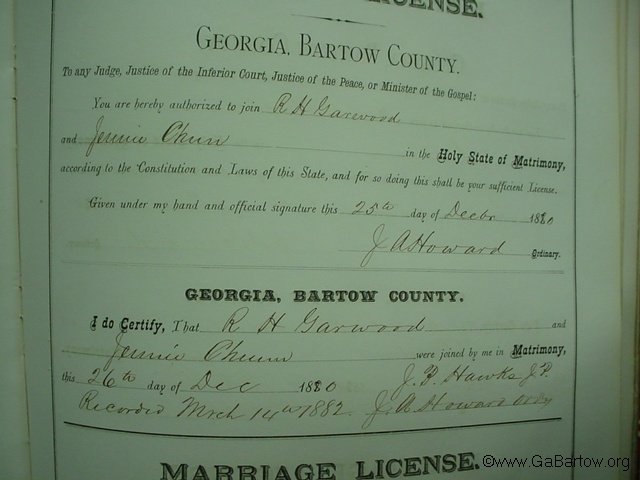 LICENSE.
GEORGIA, BARTOW COUNTY.
To any Judge, Justice of the Inferior Court, Justice of the Peace, or Minister of the Gospel:
You are hereby authorized to join R H Garwood
and Jennie Chunn in the Holy State of Matrimony,
according to the Constitution and Laws of this State, and for so doing this shall be your sufficient License.
Given under my hand and official signature this 25th day of Decbr 1880
J A Howard Ordinary.
GEORGIA, BARTOW COUNTY.
I do Certify, That R H Garwood and
Jennie Chunn were joined by me in Matrimony,
this 26th day of Dec 1880 J. F. Hawks J.P.
Recorded Mrch 14th 1882. J. A. Howard Ordy
MARRIAGE LICENSE.
©www.GaBartow.org